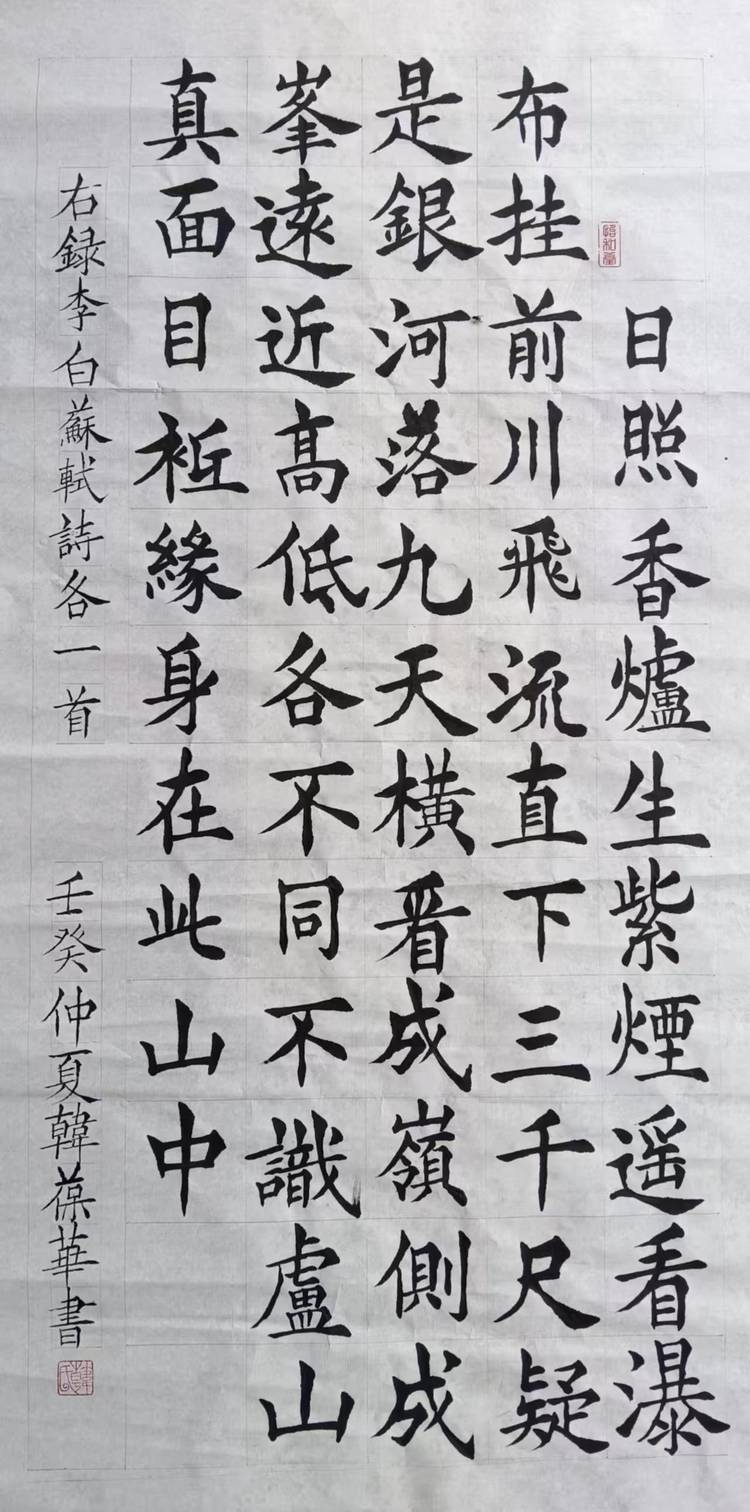 日照香爐生紫煙遥看瀑
布挂前川飛流直下三千尺疑
是銀河落九天橫看成嶺側成
峯遠近高低各不同不識盧山
真面目衹緣身在此山中
右録李白蘇軾詩各一首 壬癸仲夏韓葆華書